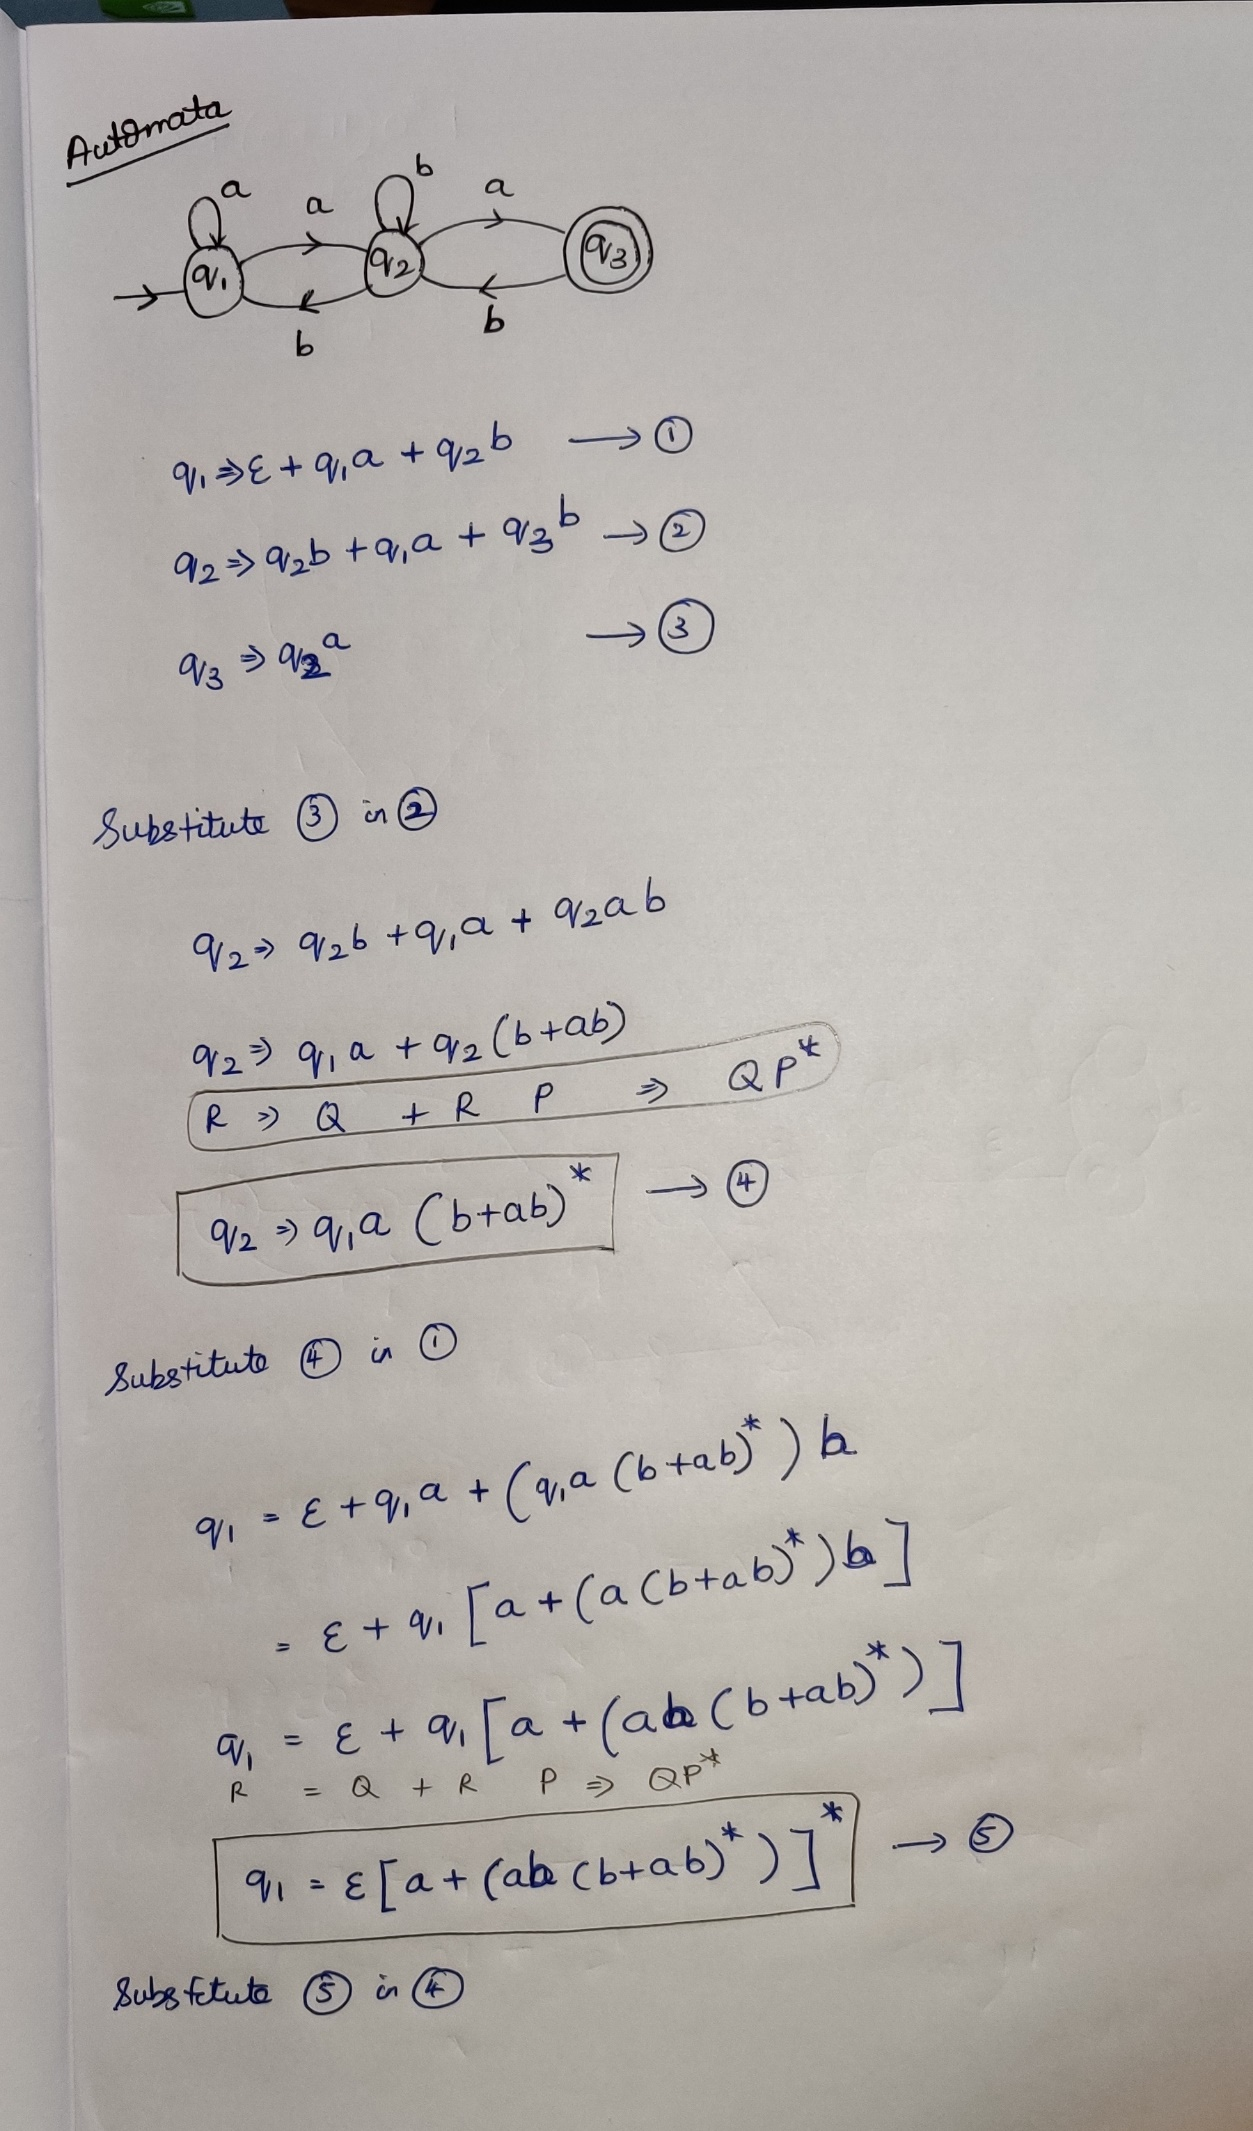 Automata
a a b a
q1 q2 q3
b b
q1 ⇒ ε + q1a + q2b → ①
q2 ⇒ q2b + q1a + q3b → ②
q3 ⇒ q2a → ③
Substitute ③ in ②
q2 ⇒ q2b + q1a + q2ab
q2 ⇒ q1a + q2 (b+ab)
R ⇒ Q + R P ⇒ QP*
q2 ⇒ q1a (b+ab)* → ④
Substitute ④ in ①
q1 = ε + q1a + (q1a (b+ab)*) b
= ε + q1 [a + (a (b+ab)*) b]
q1 = ε + q1 [a + (ab (b+ab)*)]
R = Q + R P ⇒ QP*
q1 = ε [a + (ab (b+ab)*)]* → ⑤
Substitute ⑤ in ④